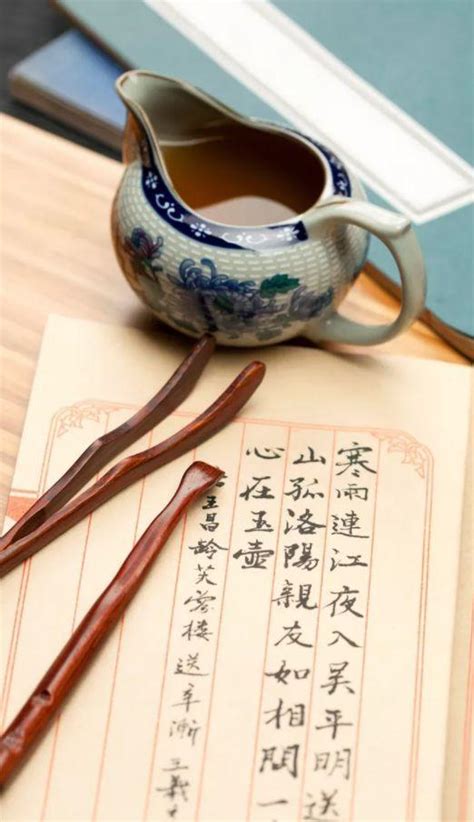 寒雨連江夜入吴平明送
山孤洛陽親友如相問一
心在玉壺
王昌齡芙蓉樓送辛漸王義